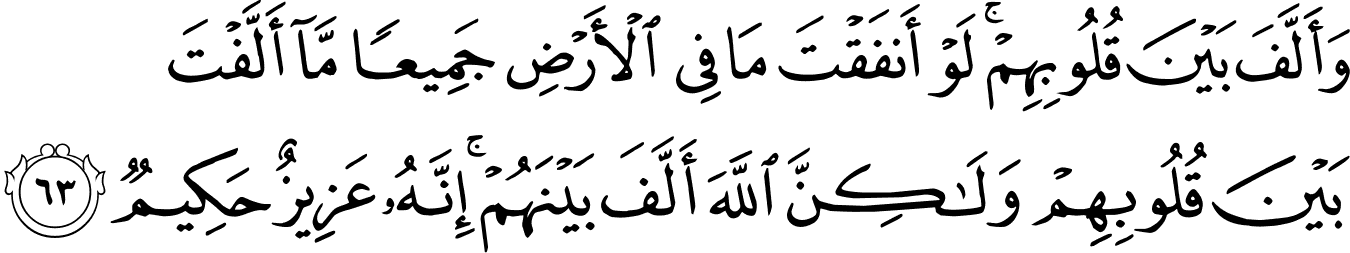 وَأَلَّفَ بَيْنَ قُلُوبِهِمْ ۚ لَوْ أَنفَقْتَ مَا فِي ٱلْأَرْضِ جَمِيعًا مَّآ أَلَّفْتَ
بَيْنَ قُلُوبِهِمْ وَلَـٰكِنَّ ٱللَّهَ أَلَّفَ بَيْنَهُمْ ۚ إِنَّهُۥ عَزِيزٌ حَكِيمٌ ٦٣